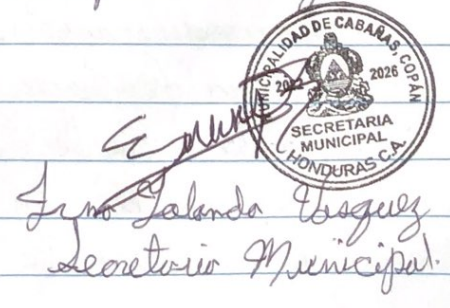 MUNICIPALIDAD DE CABAÑAS, COPÁN
2022 2026
SECRETARIA
MUNICIPAL
HONDURAS C.A.
Irma Yolanda Vásquez
Secretaria Municipal.